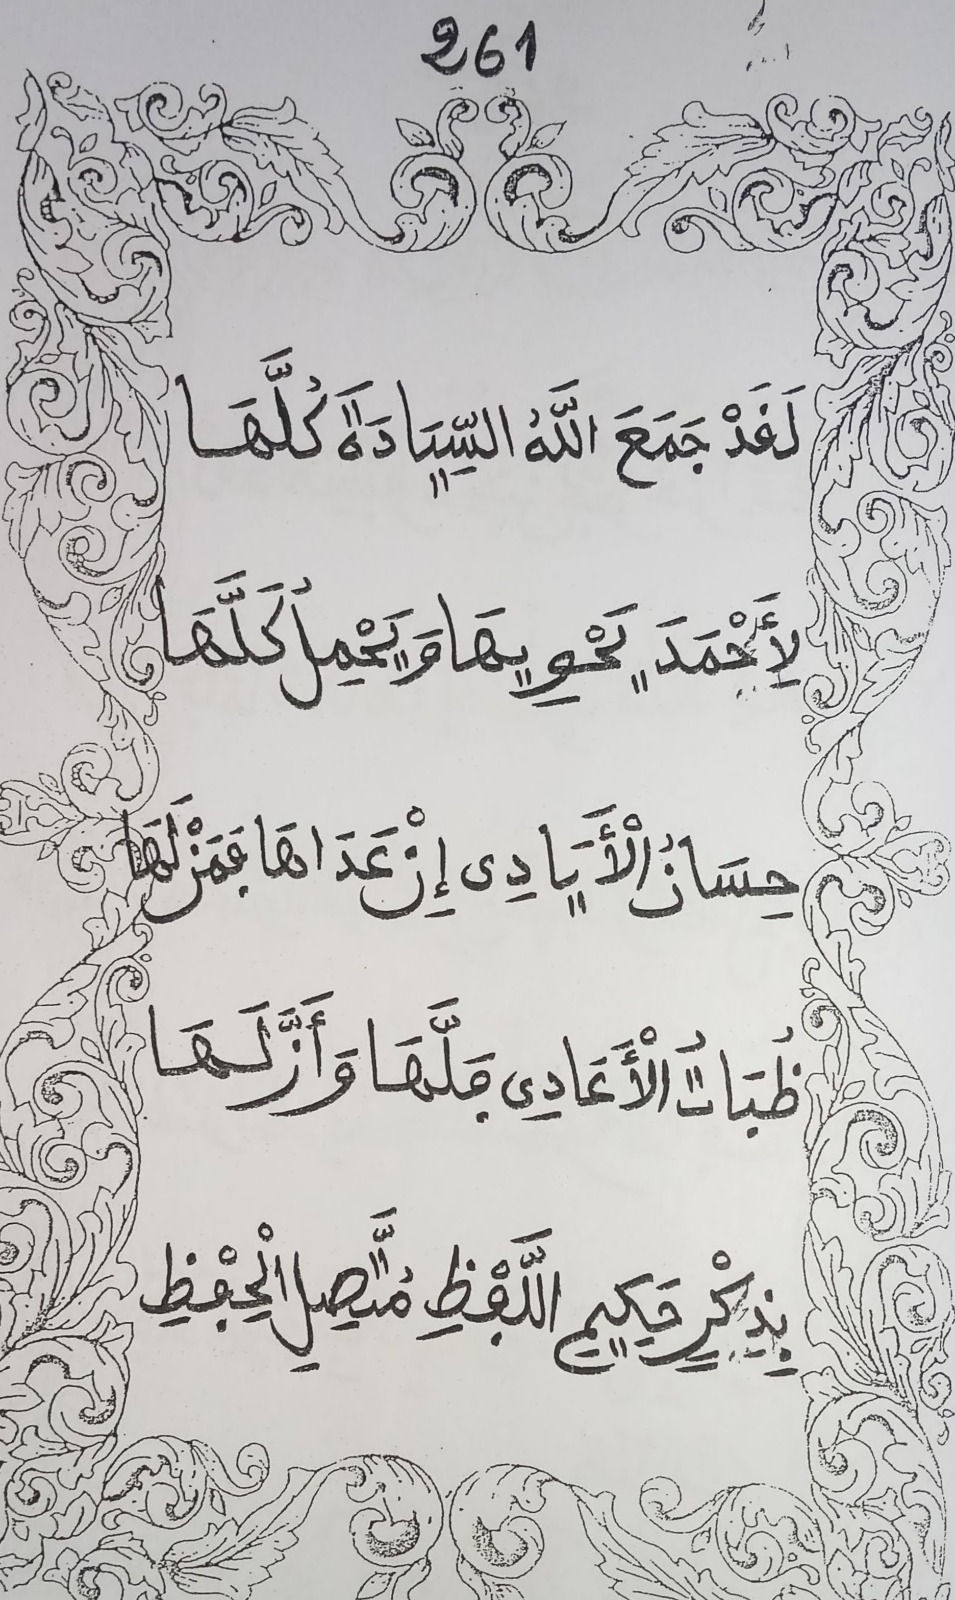 261
لَقَدْ جَمَعَ اللَّهُ السِّيَادَةَ كُلَّهَا
لِأَحْمَدَ يَحْوِيهَا وَيَحْمِلُ كَلَّهَا
حِسَانُ الْأَيَادِى إِنْ عَدَاهَا فَمَنْ لَهَا
ظُبَاتُ الْأَعَادِى فَلَّهَا وَأَزَلَّهَا
بِذِكْرٍ حَكِيمِ اللَّفْظِ مُتَّصِلِ الْحِفْظِ